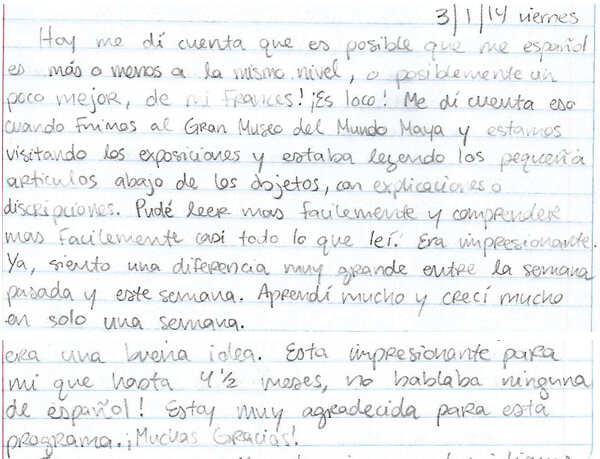 3/1/14 viernes
Hoy me dí cuenta que es posible que me español
es más o menos a la mismo nivel, o posiblemente un
poco mejor, de mi Frances! ¡Es loco! Me dí cuenta eso
cuando Fuimos al Gran Museo del Mundo Maya y estamos
visitando los exposiciones y estaba leyendo los pequeña
articulos abajo de los objetos, con explicaciones o
discripciones. Pudé leer mas facilemente y comprender
mas facilemente casi todo lo que leí. Era impresionante.
Ya, siento una diferencia muy grande entre la semana
pasada y este semana. Aprendí mucho y crecí mucho
en solo una semana.
era una buena idea. Esta impresionante para
mi que hasta 4 ½ meses, no hablaba ninguna
de español! Estoy muy agradecida para esta
programa. ¡Muchas Gracias!